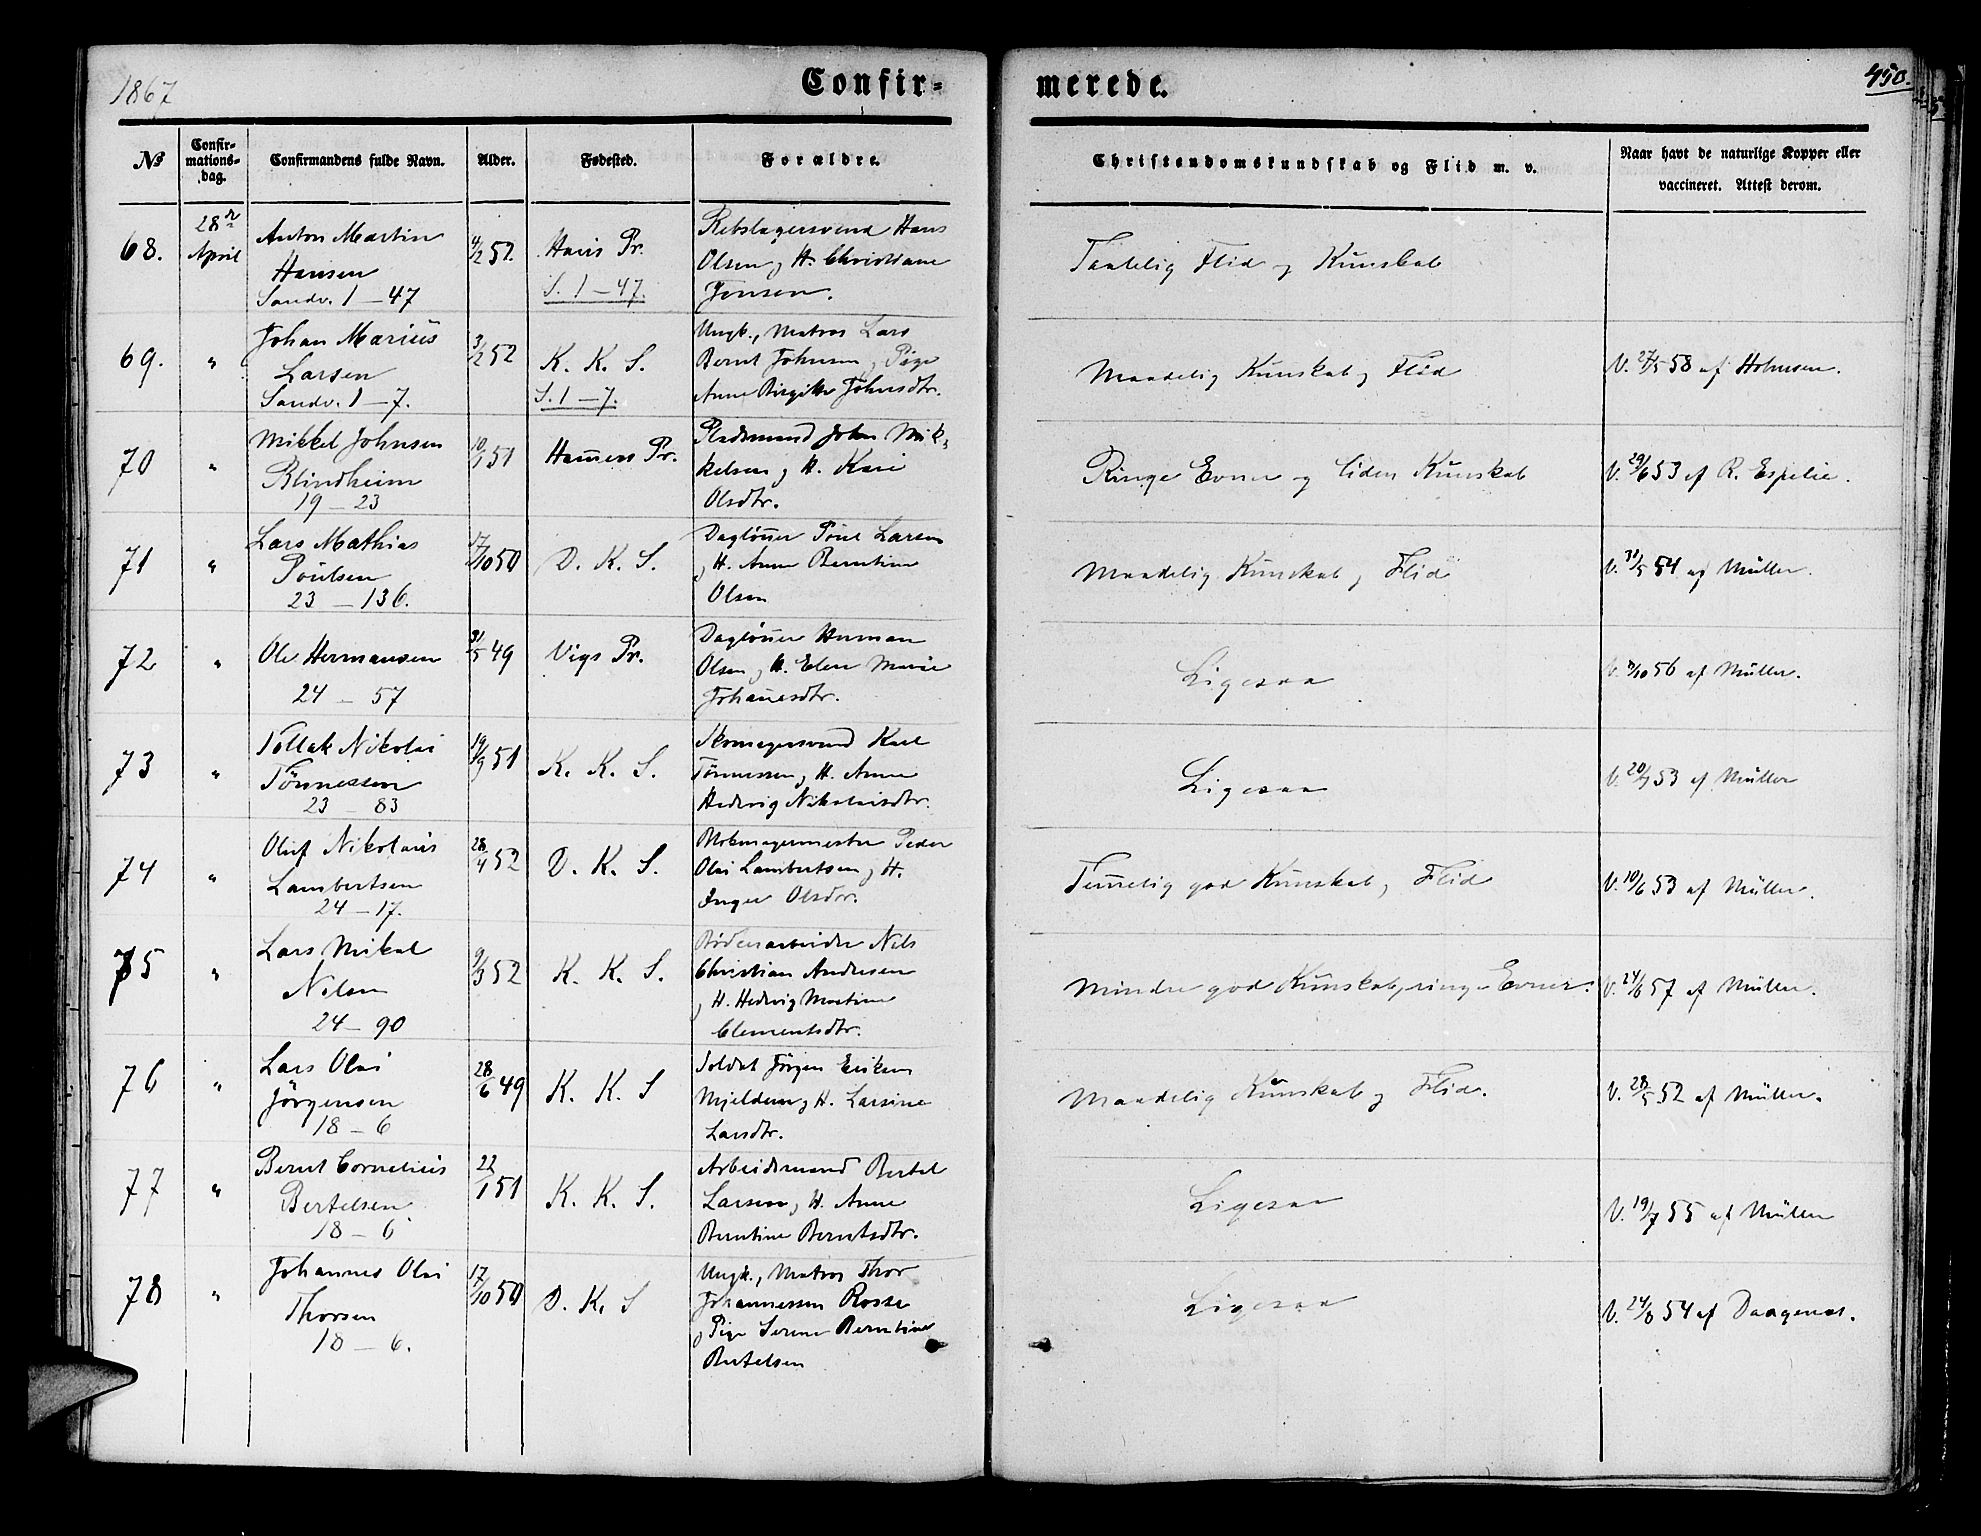 1867
Confir-
merede.
450.
№
Confir-
mations-
dag.
Confirmandens fulde Navn.
Alder.
Fødested.
Forældre.
Christendomskundskab og Flid m. v.
Naar havt de naturlige Kopper eller
vaccineret. Attest derom.
68.
28de
April
Anton Martin
Hansen
Sandv. 1 – 47
4/2 52
Havis Pr.
S. 1 – 47.
Rebslagersvend Hans
Olsen og H. Christiane
Jensen.
Taalelig Flid og Kunskab
69.
"
Johan Marius
Larsen
Sandv. 1 – 7.
3/2 52
K. K. S.
S. 1 – 7.
Ungk., Matros Lars
Bernt Johnsen og Pige
Anne Birgitte Johnsdtr.
Maadelig Kunskab og Flid
V. 27/5 58 af Holmsen.
70
"
Mikkel Johnsen
Blindheim
19 – 23
10/1 51
Pladsmand John Mik-
kelsen og H. Kari
Olsdtr.
Ringe Evner og liden Kunskab
V. 29/6 53 af R. Espelie.
71
"
Lars Mathias
Poulsen
23 – 136.
17/10 50
D. K. S.
Dagløñer Poul Larsen
og H. Anne Berntine
Olsen
Maadelig Kunskab og Flid
V. 31/5 54 af Müller.
72
"
Ole Hermansen
24 – 57
31/5 49
Vigs Pr.
Dagløñer Herman
Olsen og H. Elen Marie
Johañesdtr.
Ligesaa
V. 8/10 56 af Müller.
73
"
Tollak Nikolai
Tönnessen
23 – 83
19/9 51
K. K. S.
Skomagersvend Karl
Tönnessen og H. Anne
Hedevig Nikolaisdtr.
Ligesaa
V. 20/7 53 af Müller
74
"
Oluf Nikolaus
Lambertsen
24 – 17.
28/4 52
D. K. S.
Blokmagermester Peder
Olai Lambertsen og H.
Inger Olsdtr.
Temelig god Kunskab og Flid
V. 10/6 53 af Müller.
75
"
Lars Mikal
Nilsen
24 – 90
9/3 52
K. K. S.
Bødkerarbeider Nils
Christian Andresen
og H. Hedvig Martine
Clementsdtr.
Mindre god Kunskab, ringe Evner.
V. 24/6 57 af Müller.
76
"
Lars Olai
Jörgensen
18 – 6
28/6 49
K. K. S
Soldat Jörgen Eriksen
Mjeldem og H. Larsine
Larsdtr.
Maadelig Kunskab og Flid.
V. 28/5 52 af Müller.
77
"
Bernt Cornelius
Bertelsen
18 – 6
22/1 51
K. K. S.
Arbeidsmand Bertel
Larsen og H. Anne
Berntine Berntsdtr.
Ligesaa
V. 19/7 55 af Müller
78
"
Johannes Olai
Thorsen
18 – 6.
17/10 50
D. K. S
Ungk., Matros Thor
Johannessen Rosse
og Pige Serine Berntine
Bertelsen
Ligesaa
V. 24/8 54 af Daagenes.